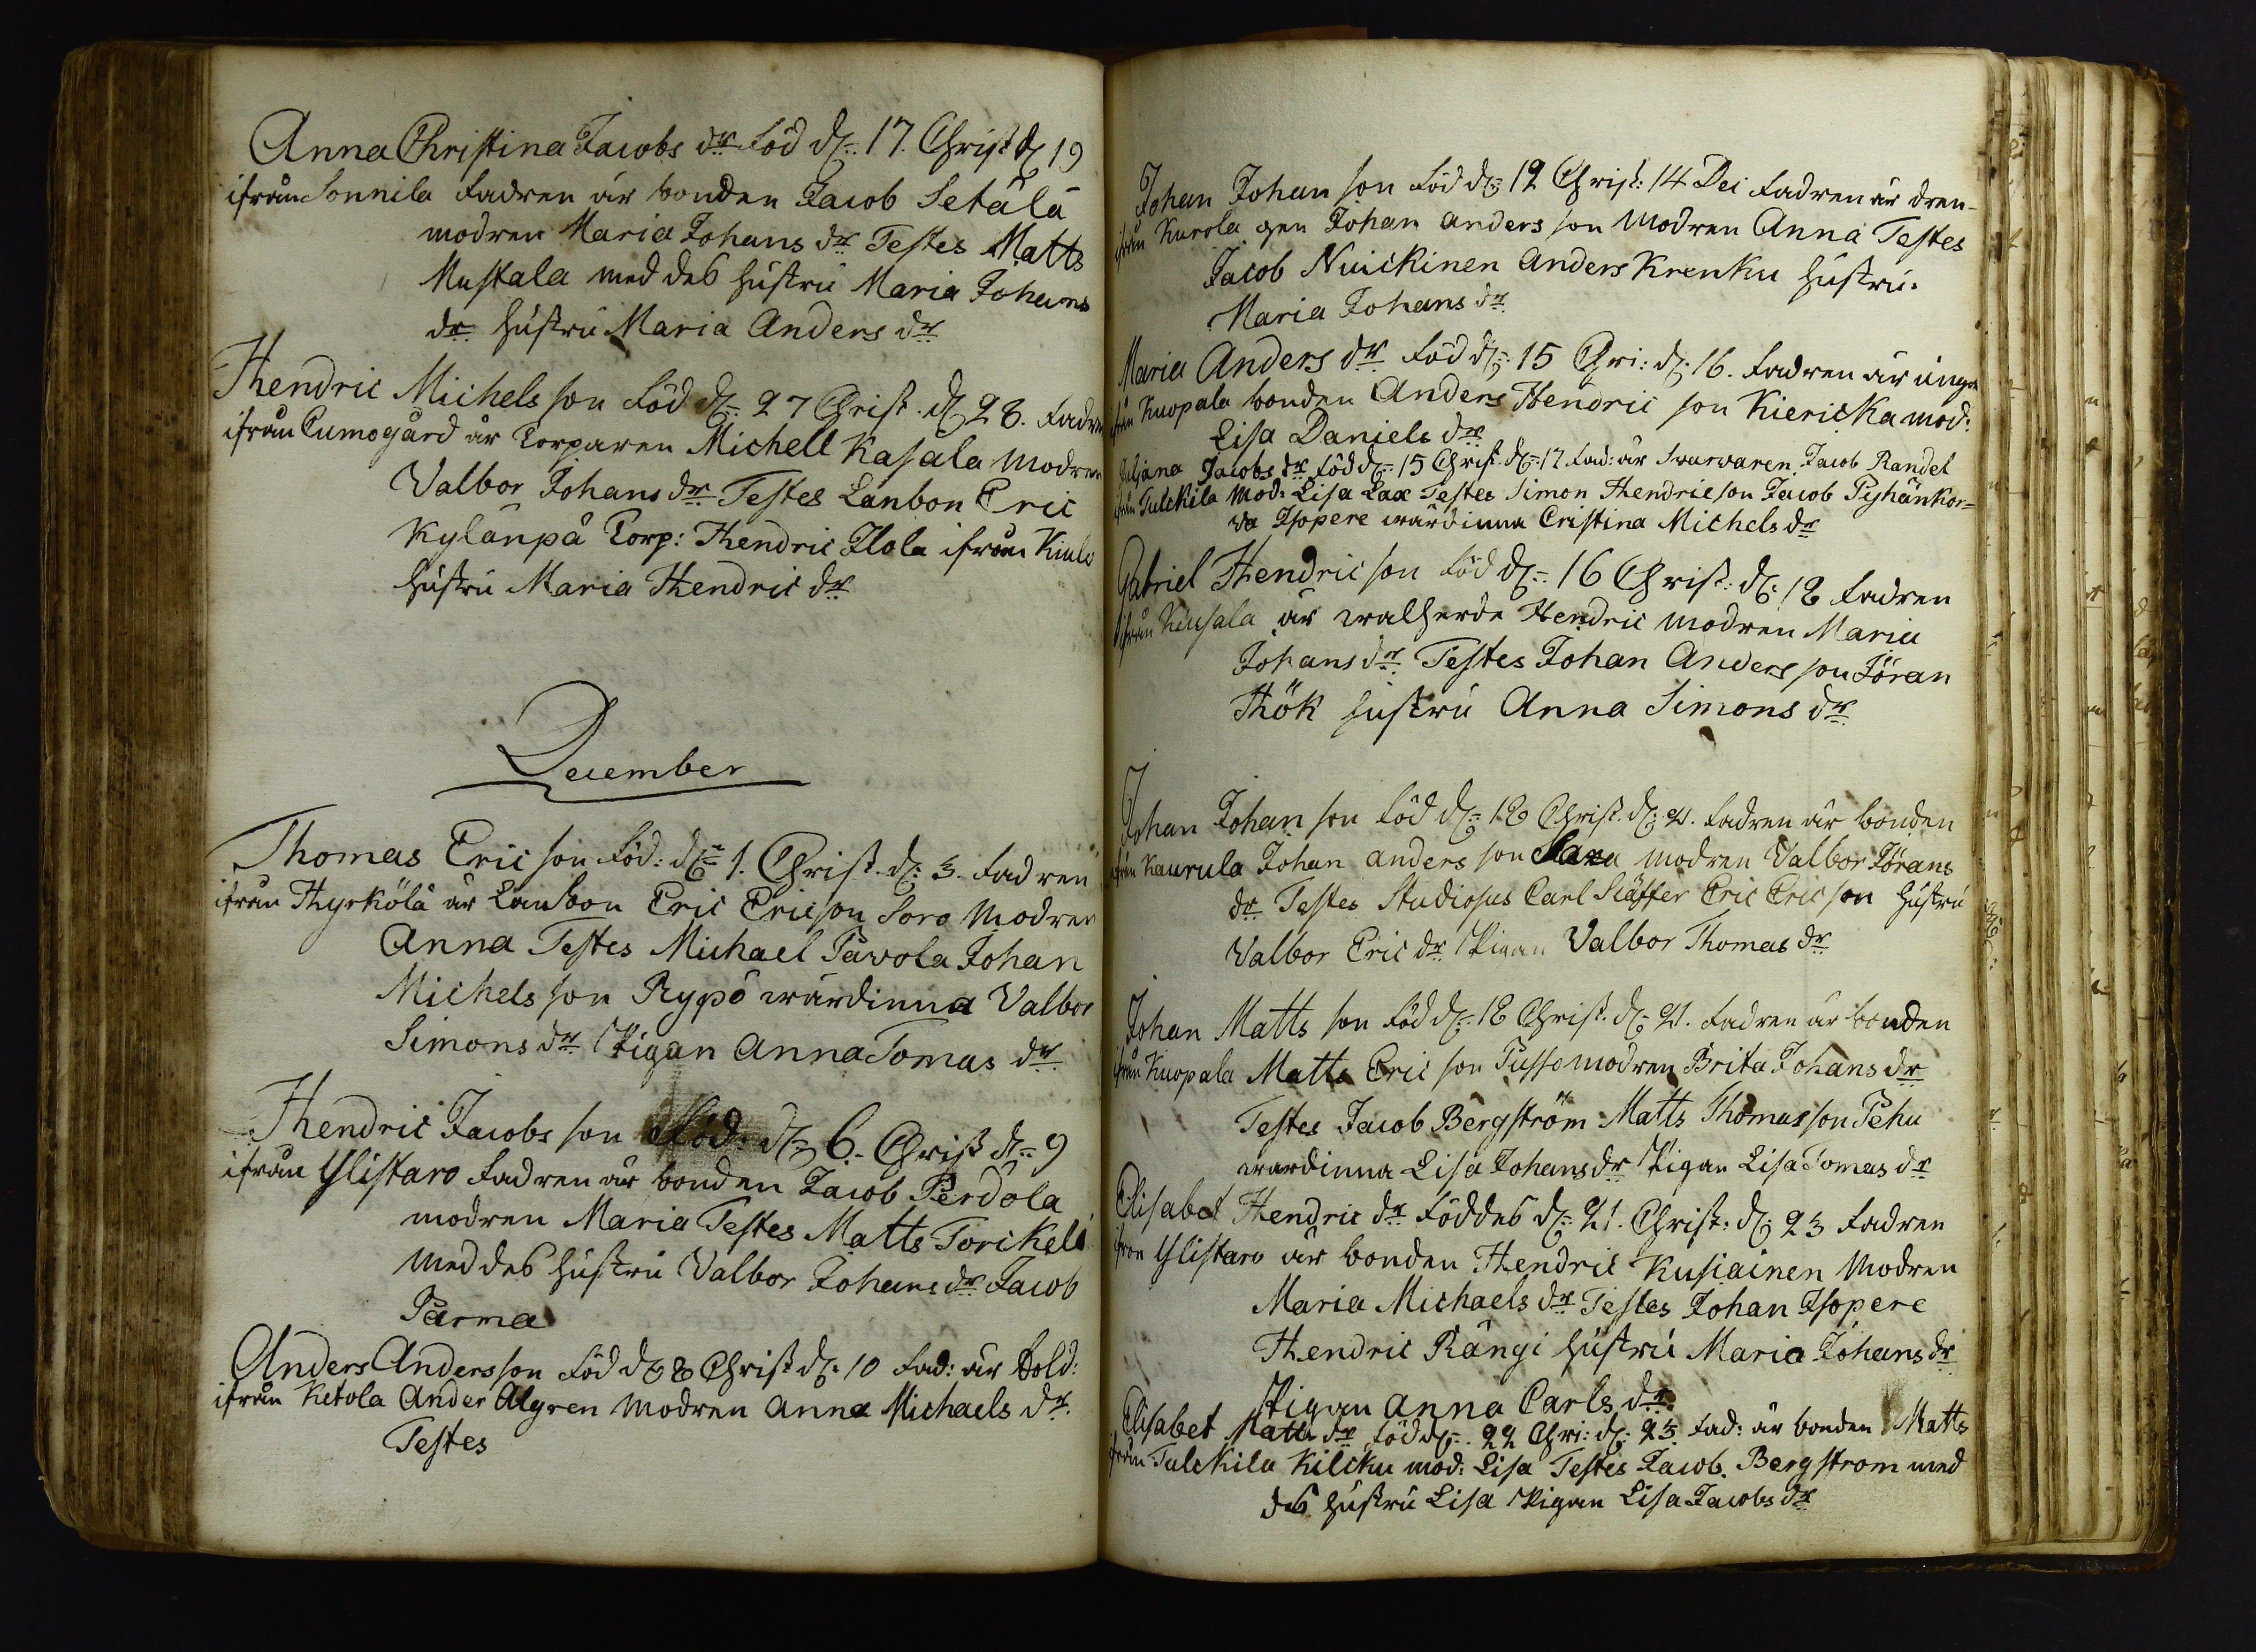 Anna Christina Jacobs dr föd d: 17. Christ d 19
ifrån Sonnila fadren är bonden Jacob Setälä
modren Maria Johans dr Testes Matts
Mustala med des hustru Maria Johans
dr hustru Maria Anders dr
Hendric Michels son föd d: 27 Christ. d 28. fadren
ifrån Cumogård är Torparen Michell Kasala modren
Valbor Johans dr Testes Lanbon Eric
Kylänpä Torp: Hendric Ilola ifrån Kiulo
hustru Maria Hendric dr
December
Thomas Eric son föd: d: 1. Christ. d: 3. fadren
ifrån Hyrkölä är Lanbon Eric Ericson Soro modren
Anna Testes Michael Pavola Johan
Michels son Rypö wärdinna Valbor
Simons dr Pigan Anna Tomas dr
Hendric Jacobs son föd. d: 6. Christ d: 9
ifrån Ylistaro fadren är bonden Jacob Perdola
modren Maria Testes Matts Torikeli
med des hustru Valbor Johans dr Jacob
Parma
Anders Andersson föd d: 8 Christ d: 10 fad: är Sold:
ifrån Ketola Ander Algren modren Anna Michaels dr
Testes
Johan Johan son föd d: 12 Christ: 14 Dei fadren är dren-
ifrån Kurola gen Johan Anders son modren Anna Testes
Jacob Nuickinen Anders Krenku hustru.
Maria Johans dr
Maria Anders dr föd d: 15 Chri: d: 16. fadren är unga
ifrån Kuopala bonden Anders Hendric son Kiericka mod:
Lisa Daniels dr
Juliana Jacobs dr föd d: 15 Christ. d: 17 fad: är Swarvaren Jacob Randel
ifrån Tulckila Mod: Lisa Lax Testes Simon Hendricson Jacob Pyhänkor=
va Isopere wärdinna Cristina Michels dr
Gabriel Hendric son föd d: 16 Christ: d: 18 fadren
ifrån Keusala är walherde Hendric modren Maria
Johans dr Testes Johan Anders son Jöran
Hök hustru Anna Simons dr
Johan Johan son föd d: 18 Christ. d: 21. fadren är bonden
ifrån Kaurula Johan anders son Sara modren Valbor Jörans
dr Testes Studiosus Carl Släffer Eric Eric son hustru
Valbor Eric dr Pigan Valbor Thomas dr
Johan Matts son föd d: 18 Christ. d: 21. fadren är bonden
ifrån Kuopala Matts Eric son Pusso modren Brita Johans dr
Testes Jacob Bergström Matts Thomas son Pehu
wardinna Lisa Johans dr Pigan Lisa Tomas dr
Elisabet Hendric dr föddes d: 21. Christ: d: 23 fadren
ifrån Ylistaro är bonden Hendric Kusiainen modren
Maria Michaels dr Testes Johan Isopere
Hendric Rängi hustru Maria Johans dr
Pigan Anna Carls dr
Elisabet Matts dr föd d: 22 Chri: d: 23. fad: är bonden Matts
ifrån Tulckila Kilcku mod: Lisa Testes Jacob Bergstrom med
des hustru Lisa Pigan Lisa Jacobs dr